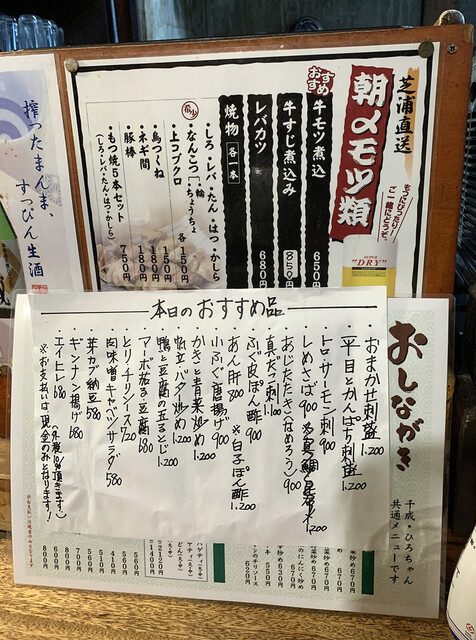 搾ったまんま、
すっぴん生酒
芝浦直送
おすすめ
朝〆モツ類
もつにぴったり!
ご一緒にどうぞ。
SUPER "DRY"
牛モツ煮込 650円
牛すじ煮込み 850円
レバカツ 680円
焼物 各一本
・しろ・レバ・たん・はつ・かしら
・なんこつ
・上コブクロ 各150円
・鳥つくね 150円
・ネギ間 180円
・豚棒 180円
・もつ焼5本セット 750円
(しろ・レバ・たん・はつ・かしら)
おしながき
千成・ひろちゃん
共通メニューです
本日のおすすめ品
・おまかせ刺盛 1.200
・平目とかんぱち刺盛 1.200
・トロ・サーモン刺 900
・しめさば 900
・あじたたき(なめろう) 900
・真だこ刺 1.100
・ふぐ皮ぽん酢 900
・あん肝 800 ※白子ぽん酢 1.200
・小ふぐ唐揚げ 900
・かきと青菜炒め 1.200
・帆立バター炒め 1.200
・鴨と豆腐の玉とじ 1.200
・マーボ茄子豆腐 680
・とりチリソース 720
・肉味噌キャベツサラダ 580
・芽カブ納豆 580
・ギンナン揚げ 680
・エイヒレ 680
(外税10%頂きます)
※お支払いは現金のみとなります!